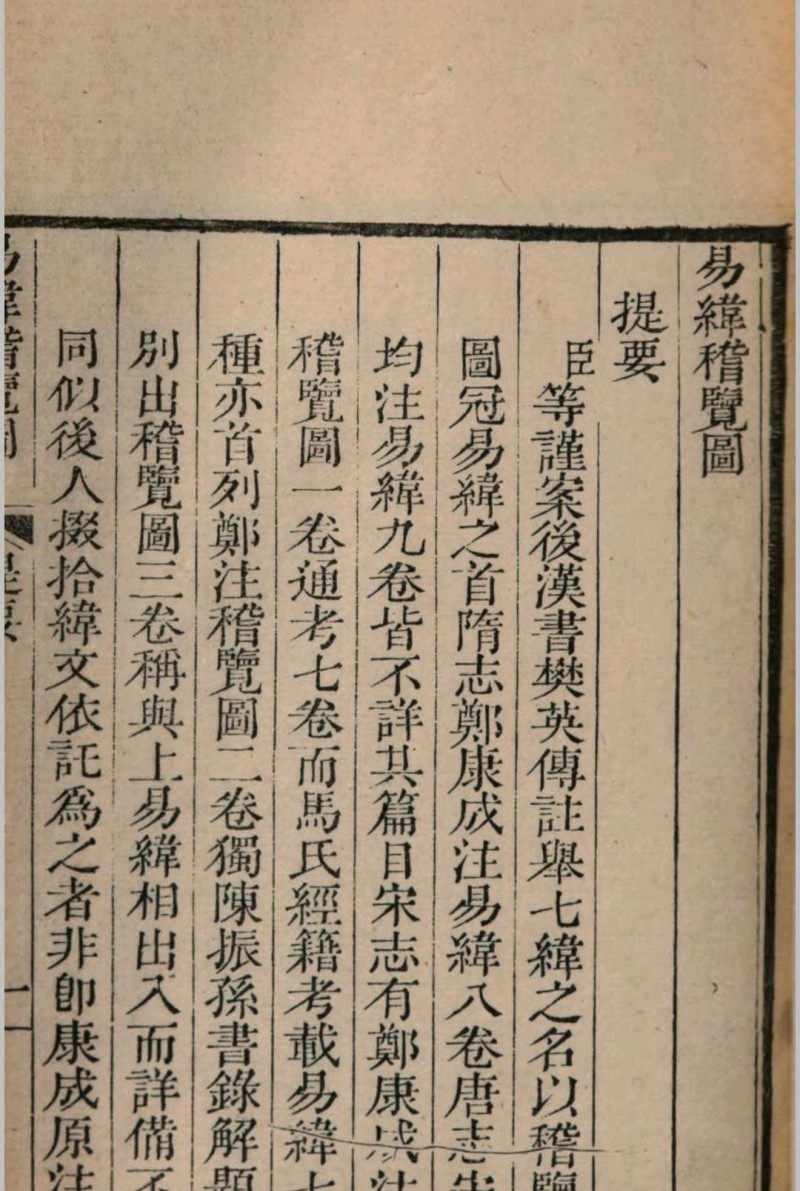 易緯稽覽圖
提要
臣等謹案後漢書樊英傳註舉七緯之名以稽覽
圖冠易緯之首隋志鄭康成注易緯八卷唐志
均注易緯九卷皆不詳其篇目宋志有鄭康成注
稽覽圖一卷通考七卷而馬氏經籍考載易緯七
種亦首列鄭注稽覽圖二卷獨陳振孫書錄解題
別出稽覽圖三卷稱與上易緯相出入而詳備不
同似後人掇拾緯文依託爲之者非卽康成原注
易緯稽覽圖 提要 一